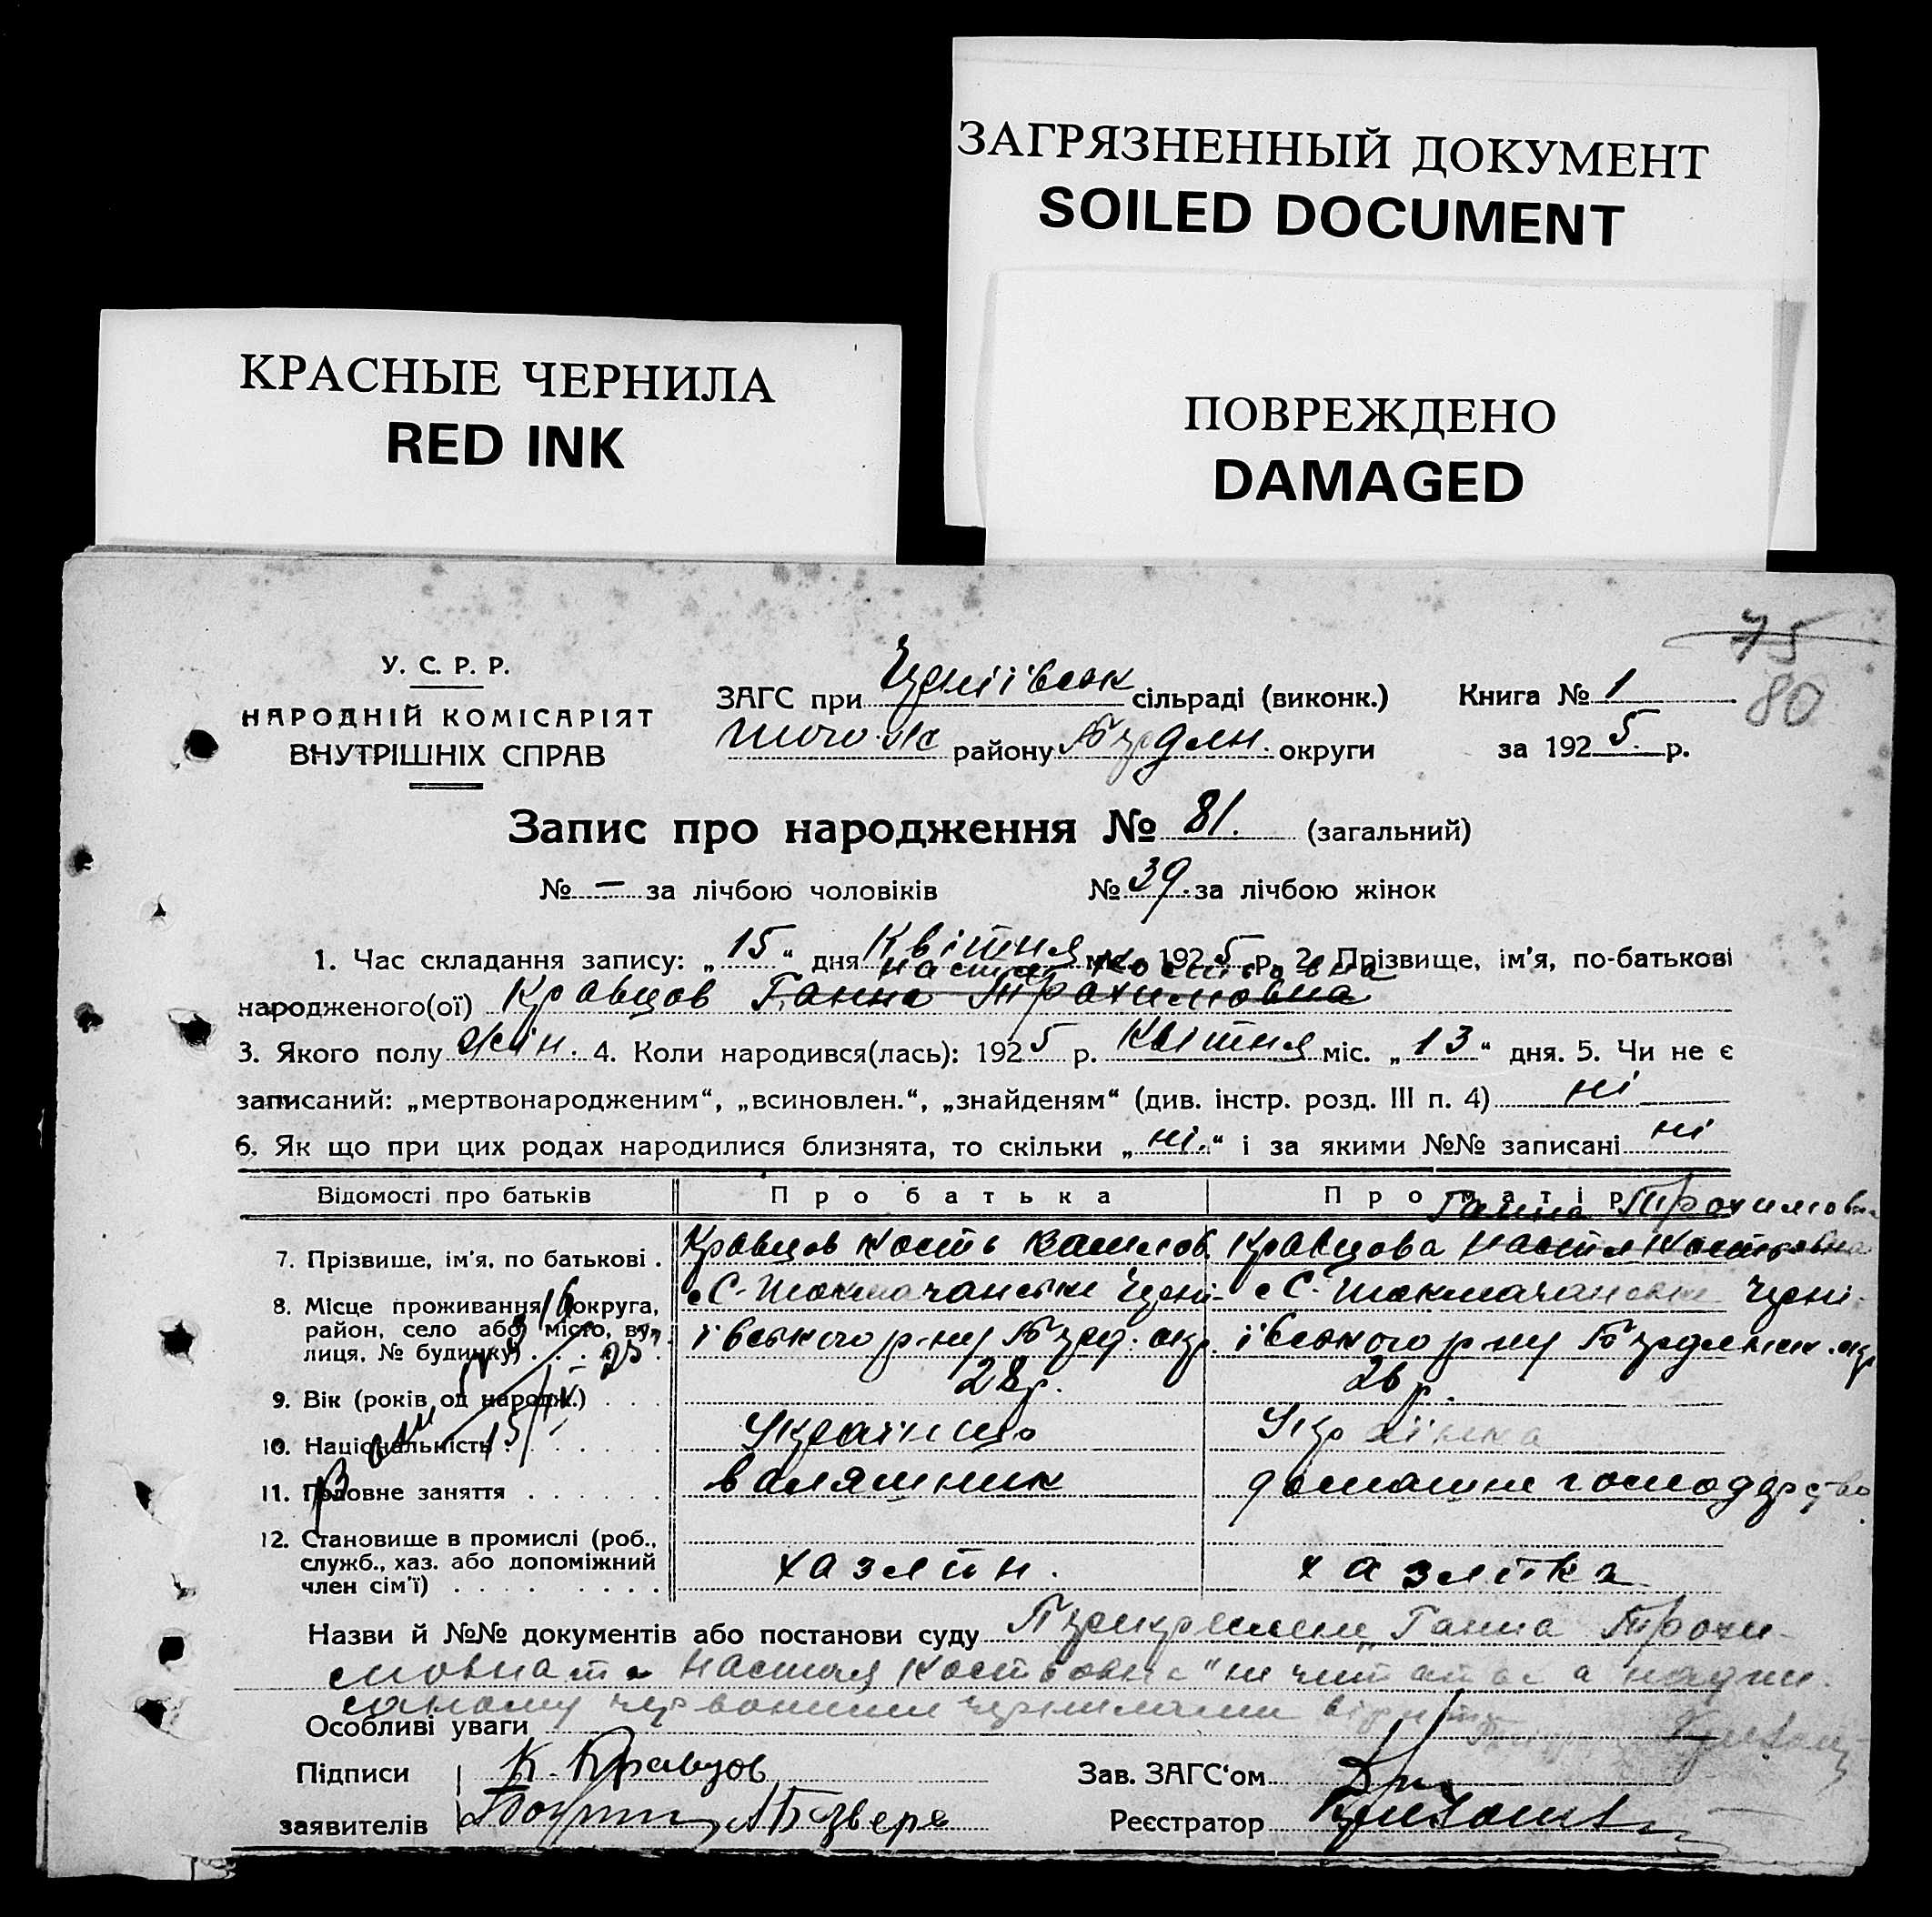 ЗАГРЯЗНЕННЫЙ ДОКУМЕНТ
SOILED DOCUMENT
КРАСНЫЕ ЧЕРНИЛА
RED INK
ПОВРЕЖДЕНО
DAMAGED
75
80
У. С. Р. Р.
НАРОДНІЙ КОМІСАРІЯТ
ВНУТРІШНІХ СПРАВ
ЗАГС при сільраді (виконк.) Книга № 1
району округи за 1925 р.
Запис про народження № 81. (загальний)
№ — за лічбою чоловіків № 39. за лічбою жінок
1. Час складання запису: „15“ дня Квітня м. 1925 р. 2. Прізвище, ім'я, по-батькові
настя Костьовна
народженого(ої) Кравцов Ганна Трохимовна
3. Якого полу жін. 4. Коли народився(лась): 1925 р. Квітня міс. „13“ дня. 5. Чи не є
записаний: „мертвонародженим“, „всиновлен.“, „знайденям“ (див. інстр. розд. III п. 4) ні
6. Як що при цих родах народилися близнята, то скільки „ні.“ і за якими №№ записані ні
Відомості про батьків Про батька Про матір
Ганна Трохимовна
7. Прізвище, ім'я, по батькові . Кравцов Кость Кравцова Настя Костьовна
8. Місце проживання (округа, район, село або місто, вулиця, № будинку)
9. Вік (років од народж.) . . . 28 р. 26 р.
10. Національність . . . . . . Українець Українка
11. Головне заняття . . . . . . домашнє господарство
12. Становище в промислі (роб., служб., хаз. або допоміжний член сім'ї) . . . . . . . . . хазяїн. хазяйка
Назви й №№ документів або постанови суду „Ганна Трохи-
мовна та Настя Костьовна“ не читати а надпи-
саному червоними чернилами вірити
Особливі уваги
Підписи К. Кравцов Зав. ЗАГС'ом
заявителів Реєстратор